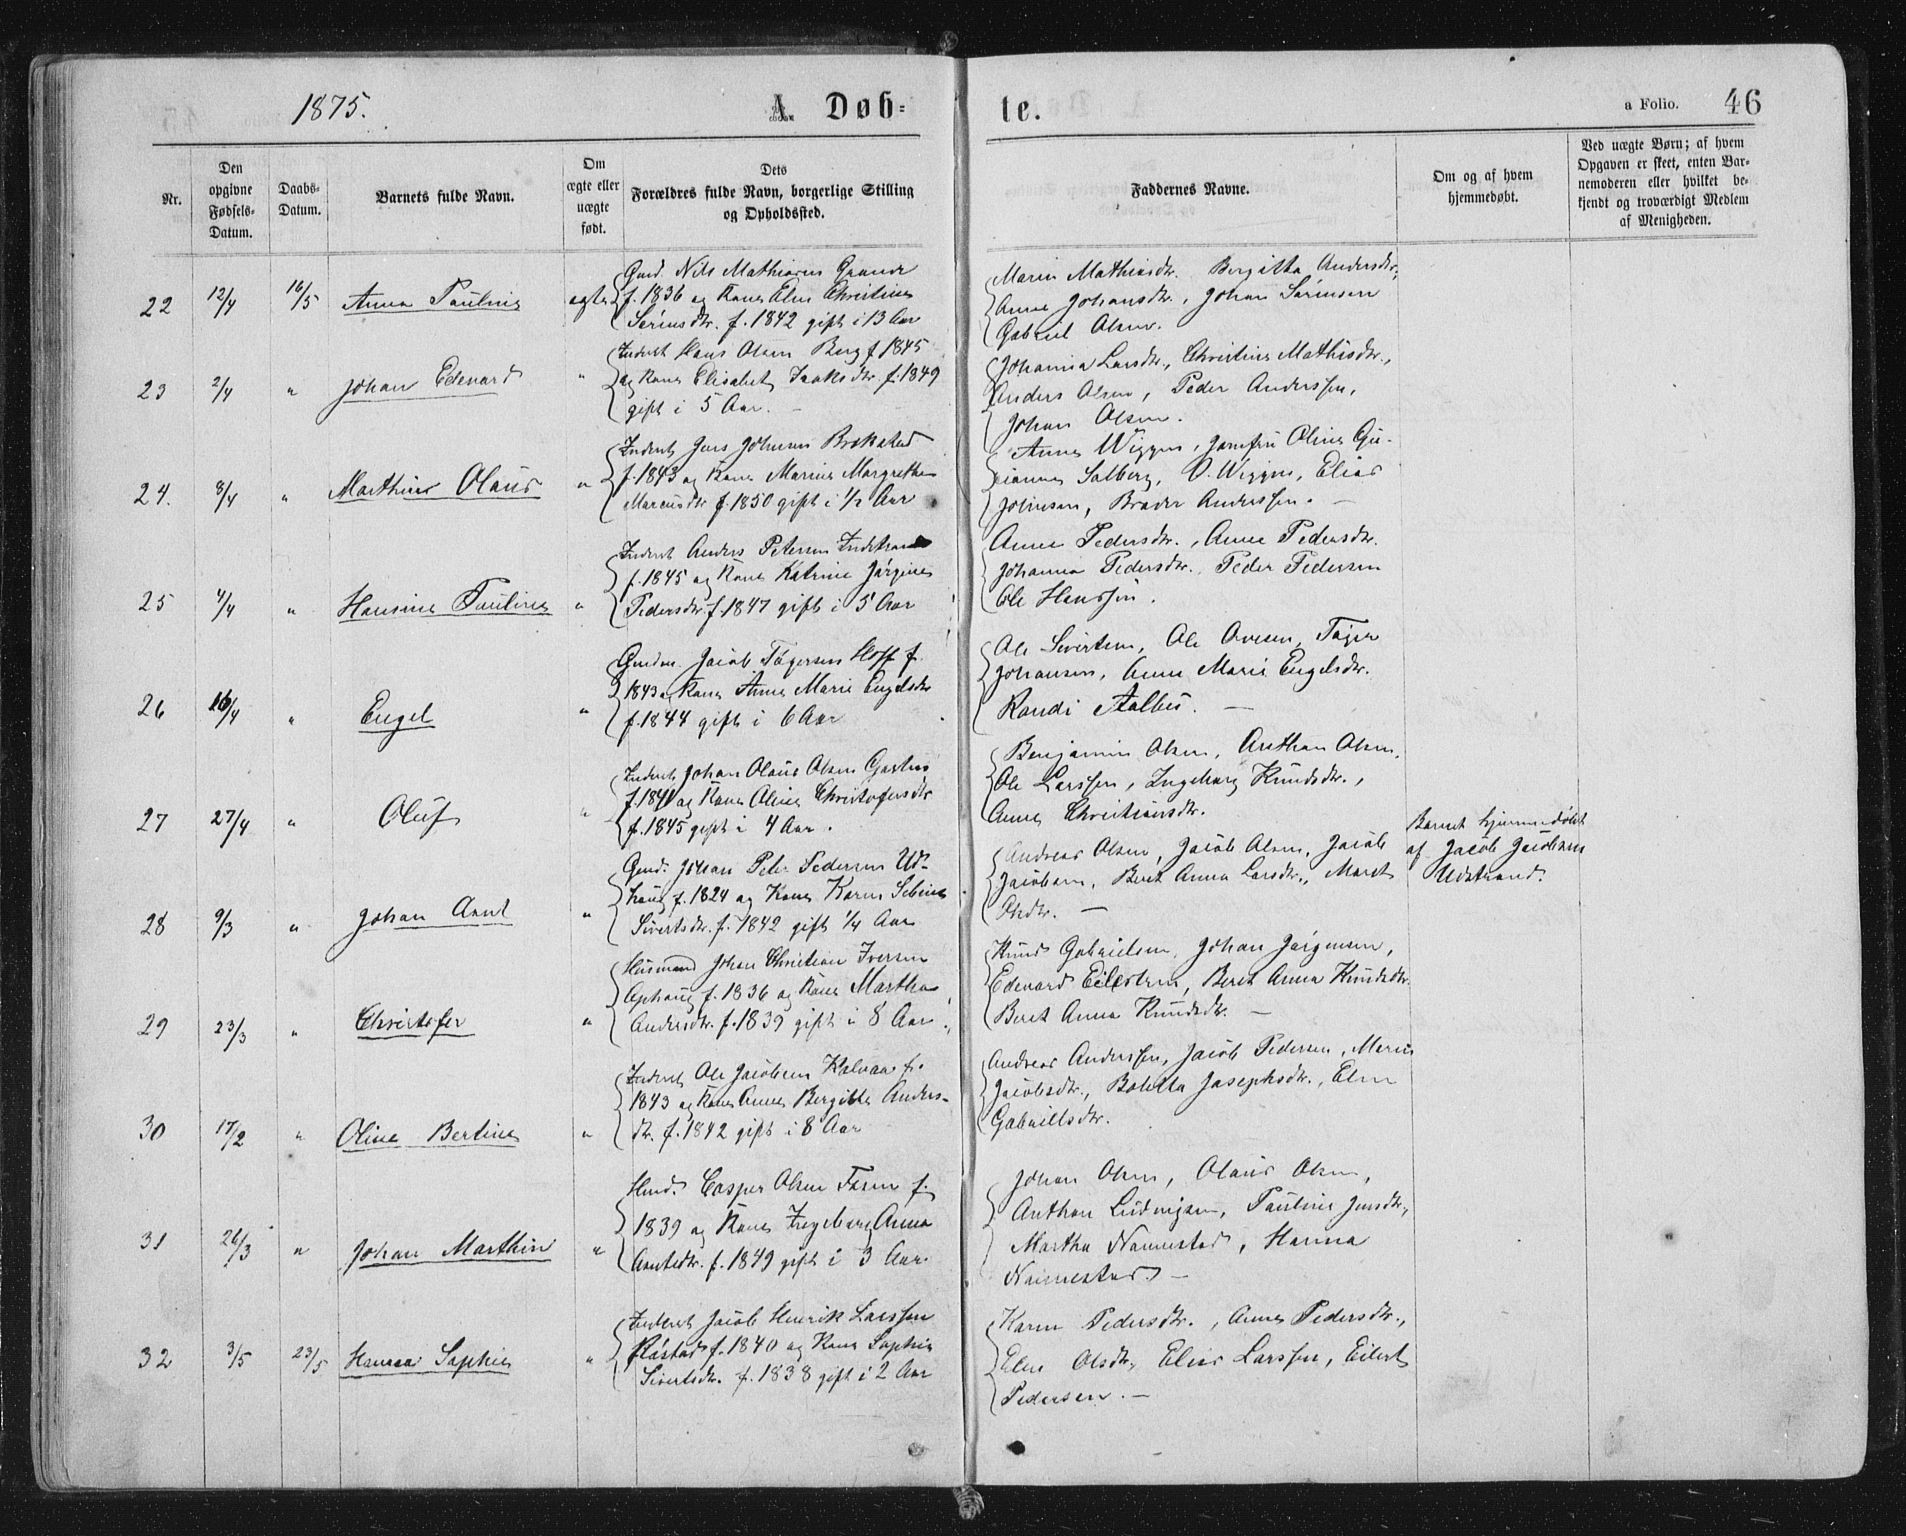 1875.
A. Døb-
te.
a Folio. 46
Nr.
Den opgivne Fødsels-Datum.
Daabs-Datum.
Barnets fulde Navn.
Om ægte eller uægte født.
Dets Forældres fulde Navn, borgerlige Stilling og Opholdssted.
Faddernes Navne.
Om og af hvem hjemmedøbt.
Ved uægte Børn; af hvem Opgaven er skeet, enten Bar-nemoderen eller hvilket be-kjendt og troværdigt Medlem af Menigheden.
22 12/4 16/5 Anna Pauline ægte
Gmd. Nils Mathiasen Grande
f. 1836 og Kone Elen Christine
Sørensdtr. f. 1842 gift i 13 Aar
Maria Mathiasdtr. Bergitta Andersdtr,
Anne Johansdtr, Johan Sørensen
Gabriel Olsen.
23 2/4 " Johan Edevard "
Inderst Hans Olsen Berg f 1845
og Kone Elisabet Isaksdtr. f. 1849
gift i 5 Aar. –
Johanna Larsdtr., Christine Mathisdtr.,
Anders Olsen, Peder Anderssen,
Johan Olsen.
24. 8/4 " Marthin Olaus "
Inderst Jens Johnsen Brekstad
f. 1843 og Kone Marine Margrethe
Marcusdtr f. 1850 gift i 1/2 Aar
Anne Wiggen, Jomfru Oline Gu-
rianna Solberg, O. Wiggen, Elias
Johnsen, Broder Anderssen. –
25 4/4 " Hansine Pauline "
Inderst Anders Petersen Indstrand
f. 1845 og Kone Katrine Jørgine
Pedersdtr. f. 1847 gift i 5 Aar
Anne Pedersdtr., Anne Pedersdtr.
Johanna Pedersdtr., Peder Pedersen
Ole Hanssen.
26 16/4 " Engel "
Gmdm. Jacob Tøgersen Hoff f.
1843 og Kone Anne Marie Engelsdtr
f. 1844 gift i 6 Aar
Ole Sivertsen, Ole Ovesen, Tøger
Johansen, Anne Marie Engelsdtr.
Randi Aalbu. –
27 27/4 " Oluf "
Inderst Johan Olaus Olsen
f. 1841 og Kone Oline Christofersdtr
f. 1845 gift i 4 Aar.
Benjamin Olsen, Anthon Olsen,
Ole Larssen, Ingeborg Knudsdtr.,
Anne Christiansdtr.
28 9/3 " Johan Arnt "
Gmd. Johan Peter Pedersen Ud-
haug f. 1824 og Kone Karen Sebine
Sivertsdtr. f. 1842 gift 1/4 Aar
Andreas Olsen, Jacob Olsen, Jacob
Jacobsen, Beret Anna Larsdtr., Maret
Olsdtr. –
Barnet hjemmedøbt
af Jacob Jacobsen
Udstrand.
29 23/3 " Christofer "
Husmand Johan Christian Iversen
Ophaug f. 1836 og Kone Martha
Andersdtr. f. 1839 gift i 8 Aar.
Knud Gabrielsen, Johan Jørgensen,
Edevard Eilertsen, Beret Anna Knudsdtr.
Beret Anna Knudsdtr. –
30 17/2 " Oline Bertine "
Inderst Ole Jacobsen Kalvaa f.
1843 og Kone Anne Bergitte Anders-
dtr. f. 1842 gift i 8 Aar
Andreas Anderssen, Jacob Pedersen, Maria
Jacobsdtr., Boletta Josephsdtr., Elen
Gabrielsdtr.
31 26/3 " Johan Marthin "
Hmd. Casper Olsen f.
1839 og Kone Ingeborg Anna
Arntsdtr. f. 1849 gift i 3 Aar.
Johan Olsen, Olaus Olsen,
Anthon Ludvigsen, Pauline Jensdtr,
Martha Nannestad, Hanna
Nannestad. –
32 3/5 23/5 Hanna Sophie "
Inderst Jacob Henrik Larssen
Røstad f. 1840 og Kone Sophie
Sivertsdtr. f. 1838 gift i 2 Aar
Karen Pedersdtr., Anne Pedersdtr.,
Elen Olsdtr, Elias Larssen, Eilert
Pedersen. –